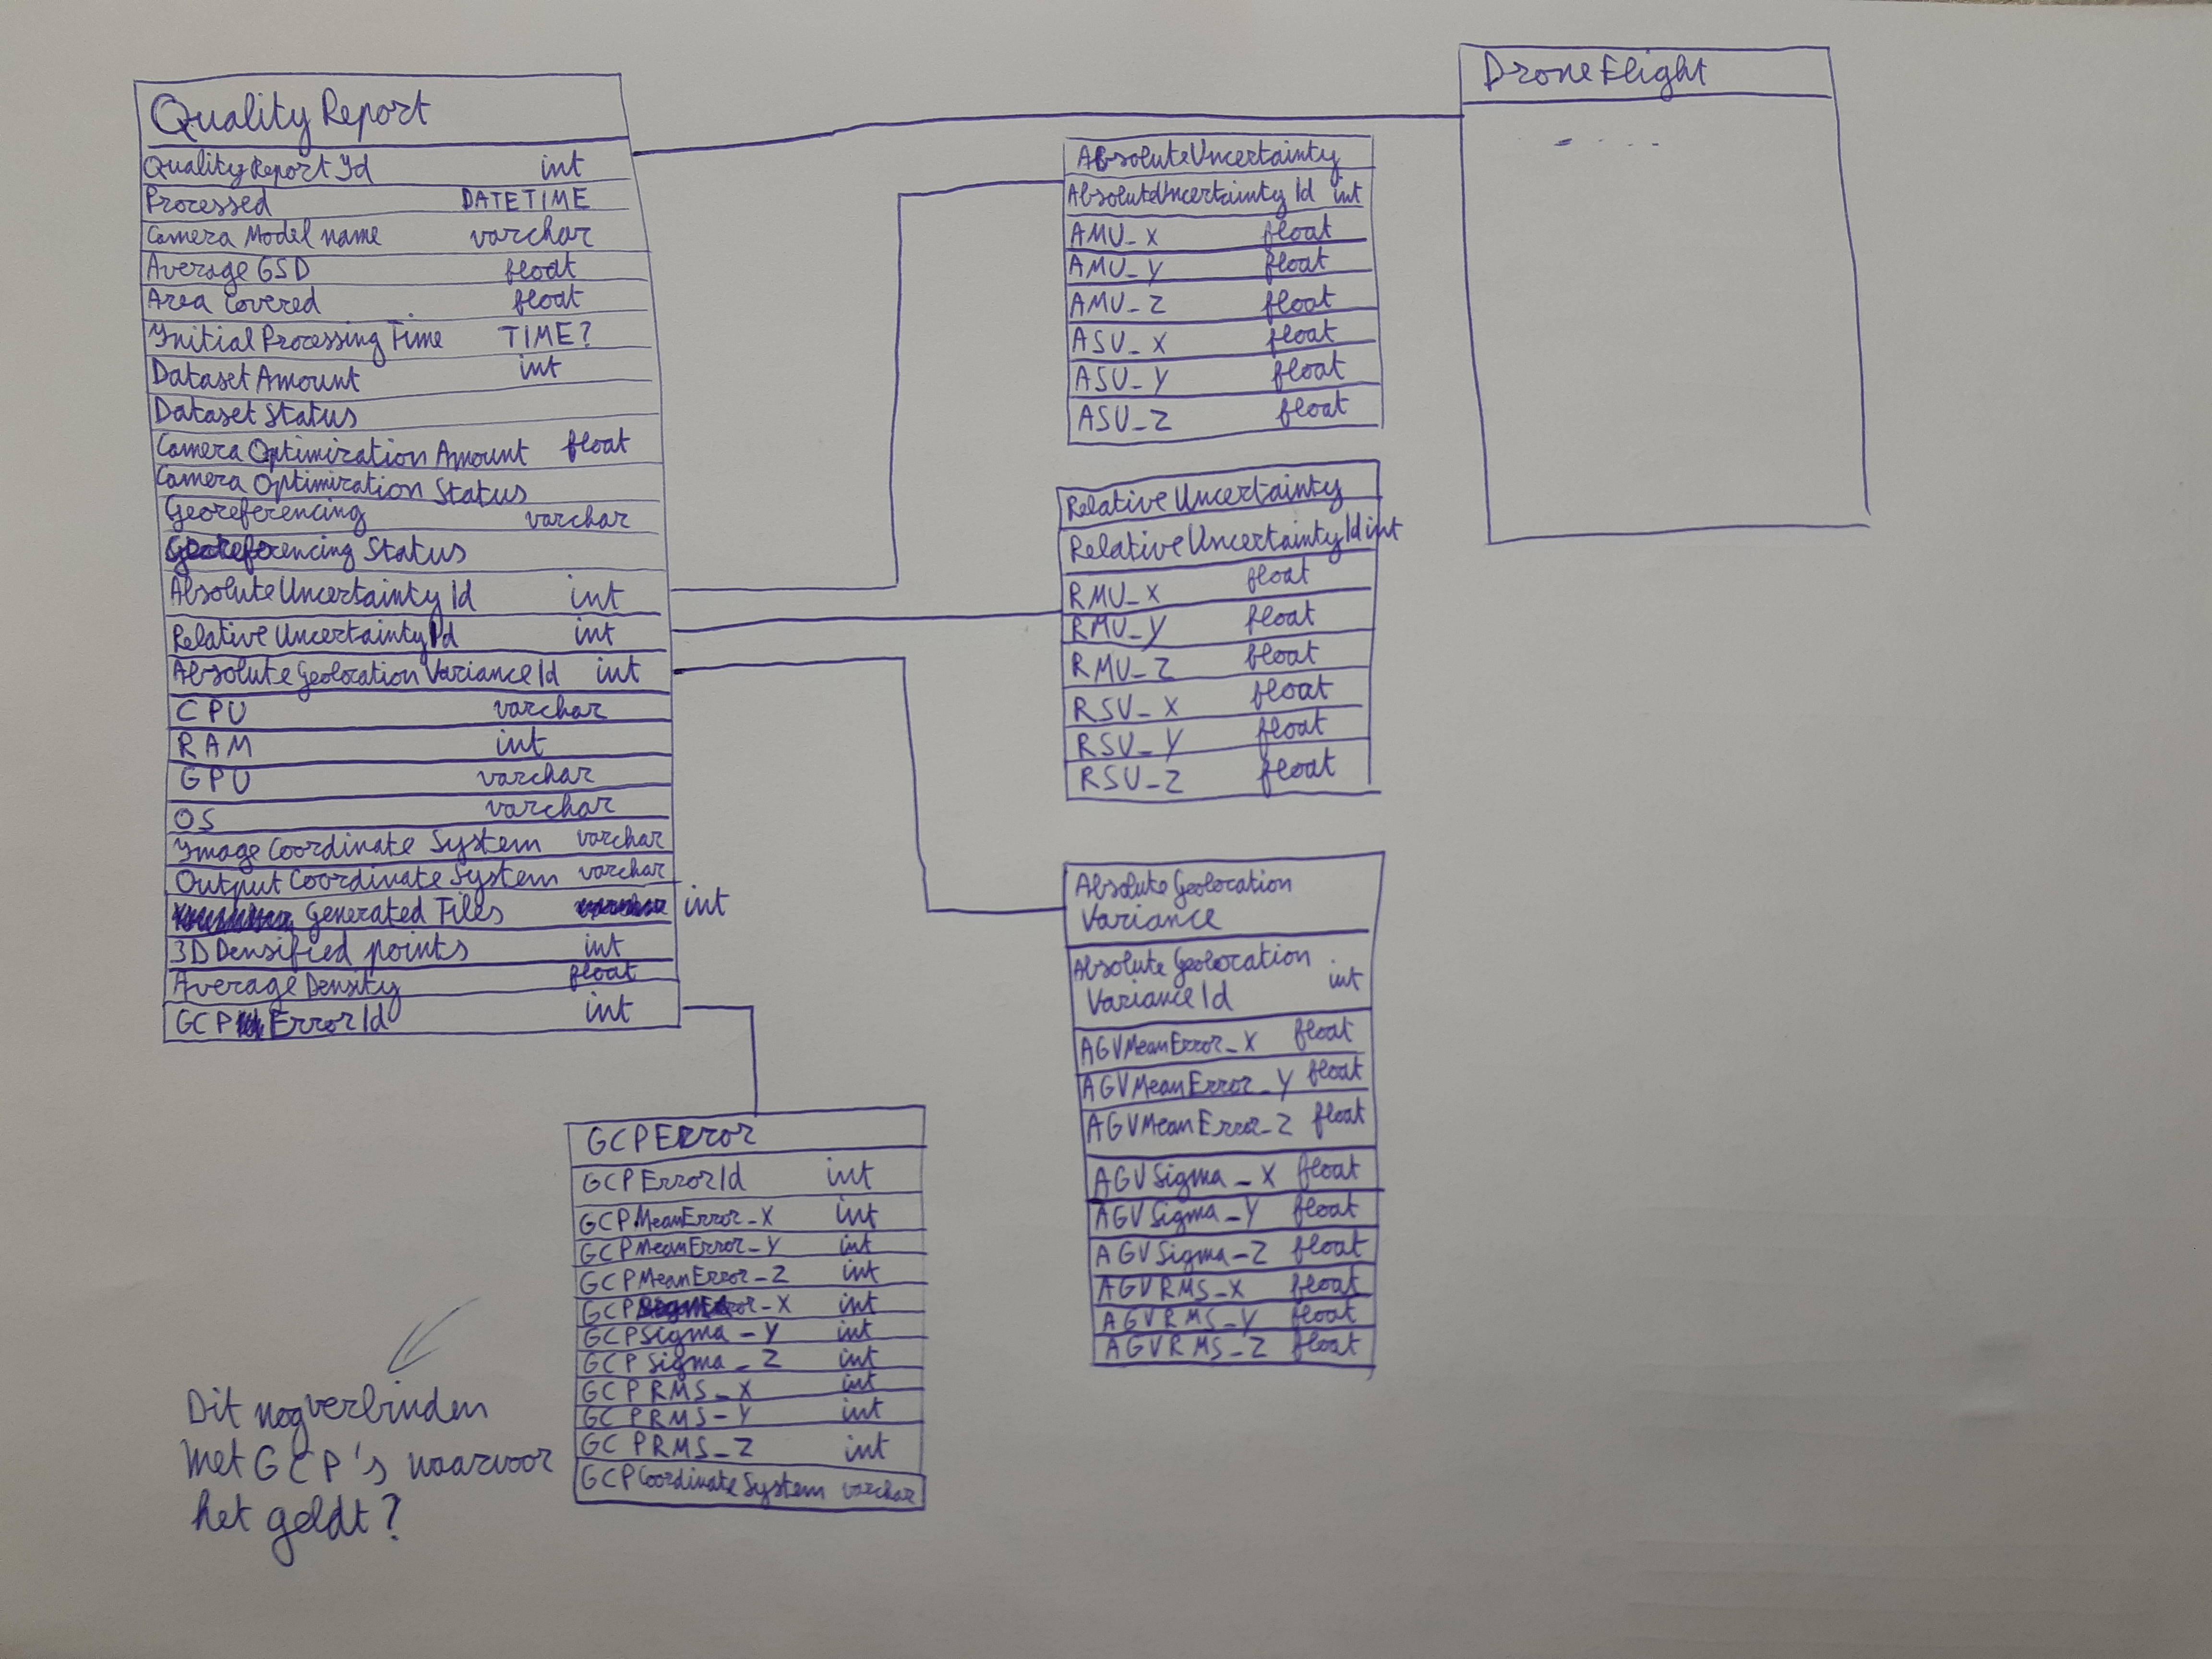 QualityReport
QualityReportId int
Processed DATETIME
Camera Model name varchar
Average GSD float
Area Covered float
Initial Processing Time TIME?
Dataset Amount int
Dataset Status
Camera Optimization Amount float
Camera Optimization Status
Georeferencing varchar
Georeferencing Status
AbsoluteUncertaintyId int
RelativeUncertaintyId int
AbsoluteGeolocationVarianceId int
CPU varchar
RAM int
GPU varchar
OS varchar
Image Coordinate System varchar
Output Coordinate System varchar
Generated Files int
3D Densified points int
Average Density float
GCPErrorId int
DroneFlight
- - - -
AbsoluteUncertainty
AbsoluteUncertaintyId int
AMU_X float
AMU_Y float
AMU_Z float
ASU_X float
ASU_Y float
ASU_Z float
RelativeUncertainty
RelativeUncertaintyId int
RMU_X float
RMU_Y float
RMU_Z float
RSU_X float
RSU_Y float
RSU_Z float
Absolute Geolocation
Variance
Absolute Geolocation
VarianceId int
AGVMeanError_X float
AGVMeanError_Y float
AGVMeanError_Z float
AGVSigma_X float
AGVSigma_Y float
AGVSigma_Z float
AGVRMS_X float
AGVRMS_Y float
AGVRMS_Z float
GCPError
GCPErrorId int
GCPMeanError_X int
GCPMeanError_Y int
GCPMeanError_Z int
GCPSigmaError_X int
GCPSigma_Y int
GCPSigma_Z int
GCPRMS_X int
GCPRMS_Y int
GCPRMS_Z int
GCPCoordinateSystem varchar
Dit nog verbinden
met GCP's waarvoor
het geldt?